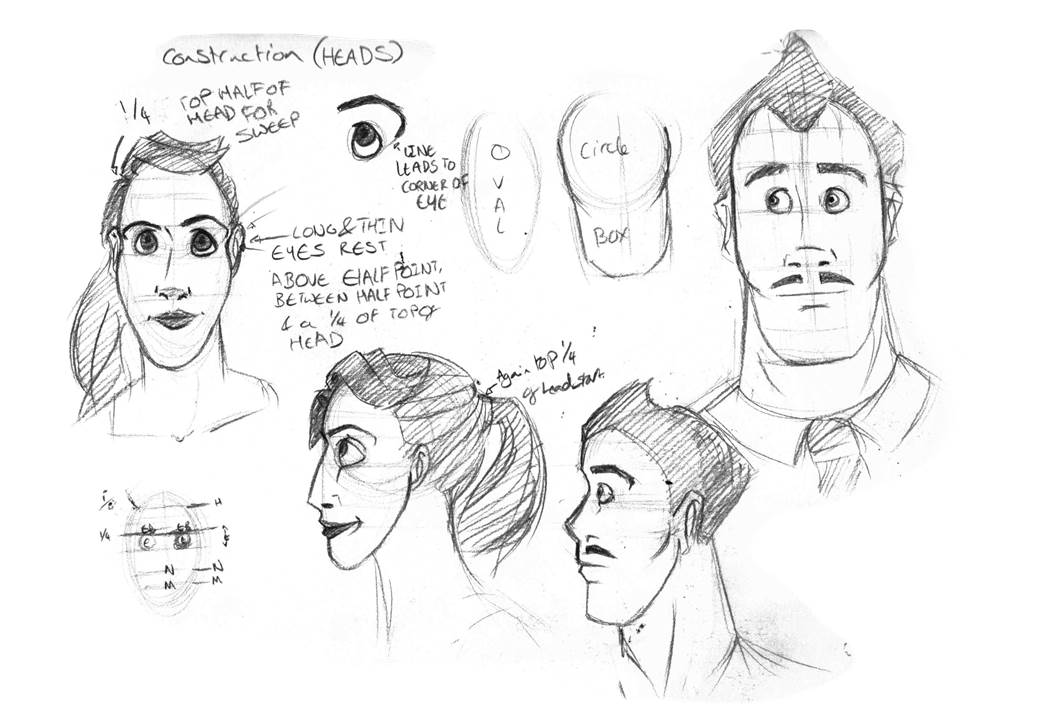 Construction (HEADS)
1/4 TOP HALF OF
HEAD FOR
SWEEP
LINE
LEADS TO
CORNER OF
EYE
OVAL
Circle
Box
LONG & THIN
EYES REST
ABOVE HALF POINT,
BETWEEN HALF POINT
& a 1/4 OF TOP OF
HEAD
Again top 1/4
of head start.
1/8
H
1/4
EB EB
E E
N N
M M